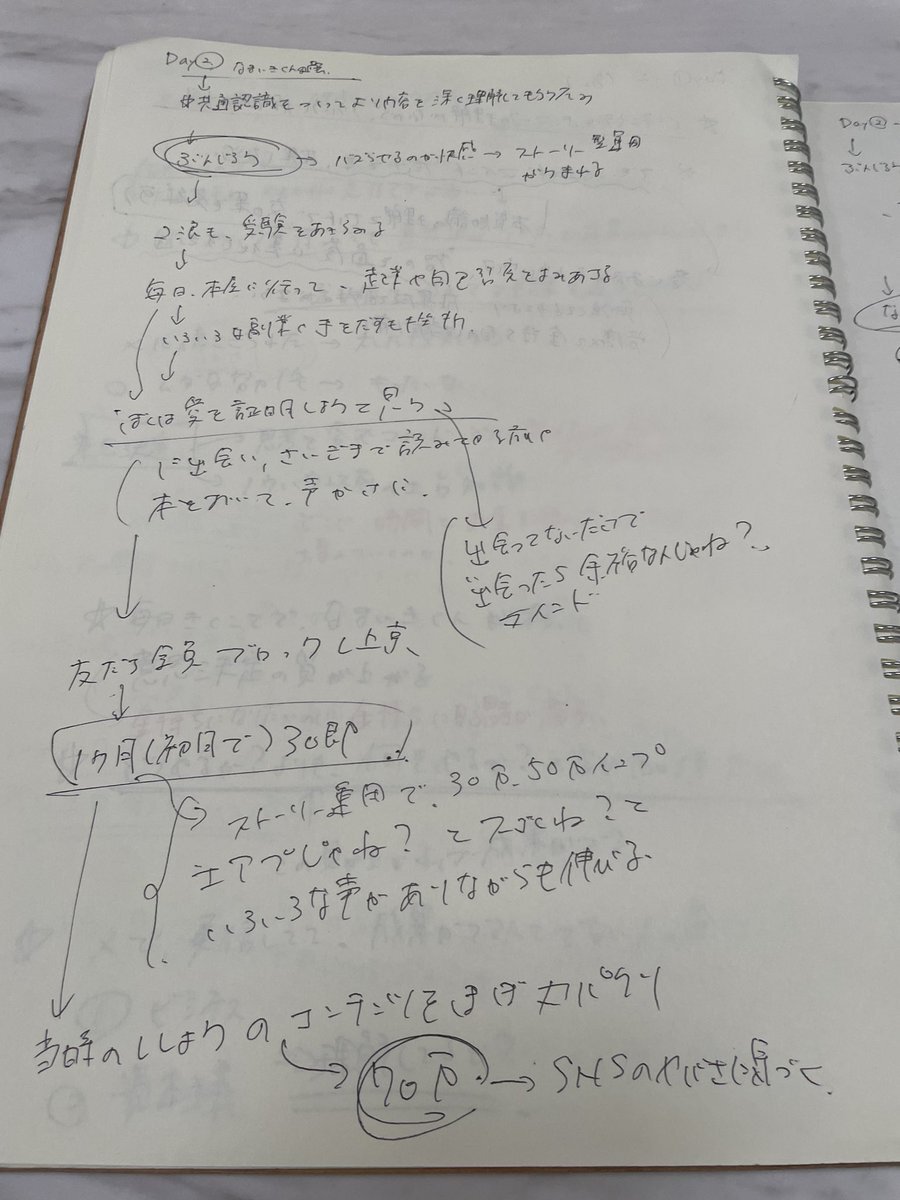 Day②
↓
共通認識をつくってより内容を深く理解してもらうため
↓
ぶんじろう → バズらせるのが快感 → ストーリー
↓
2浪も、受験をあきらめる
↓
毎日、本屋に行って、起業や自己啓発をよみあさる
↓
いろいろな副業に手をだすも
↓
ぼくは愛を証明しようと思う
に出会い、さいごまで読み
本をおいて、声かけに.
出会ってないだけで
出会ったら余裕なんじゃね?
マインド
↓
友だち全員ブロックし上京、
↓
1ヶ月(初月で)30即
→ ストーリー運用で、30万、50万インプ
エアプじゃね?とスゴくね?と
いろいろな声がありながらも伸びる
当時のししょうのコンテンツをまずカパクリ
→ 70万 → SNSのヤバさに気づく
Day②
↓
ぶんじろう
↓
な